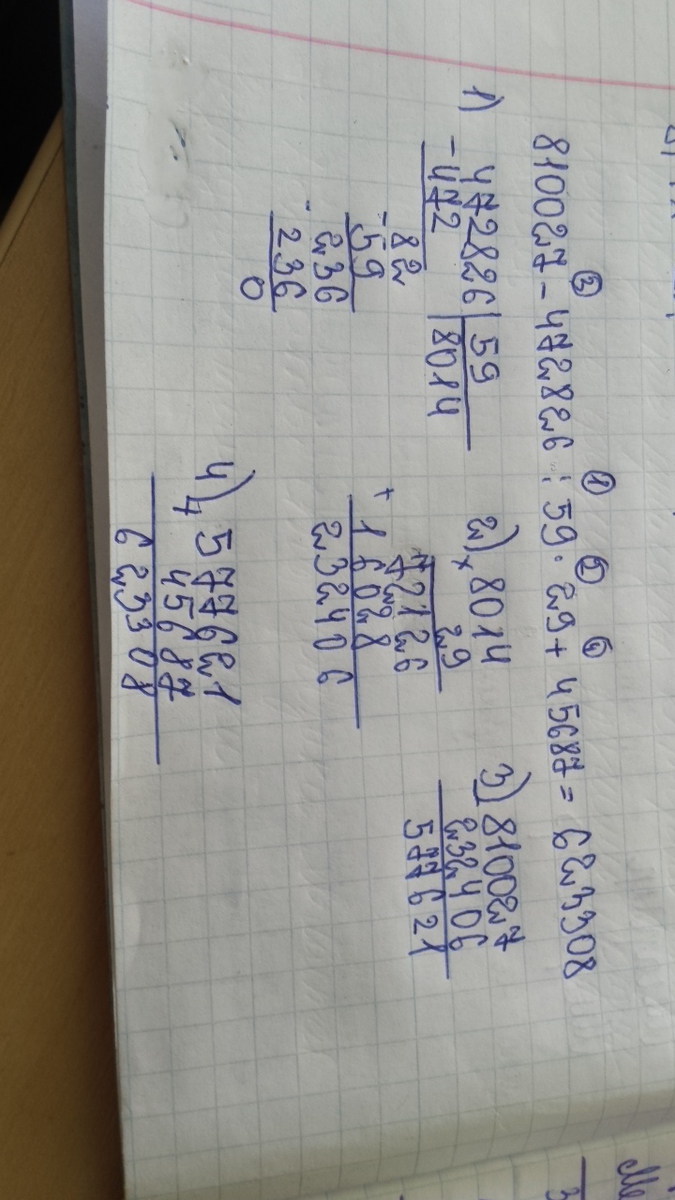 ③ ① ② ④
810027 - 472826 : 59 · 29 + 45687 = 623308
1) - 472826 | 59
472 | 8014
82
- 59
236
- 236
0
2) × 8014
29
72126
+ 16028
232406
3) 810027
232406
577621
4) + 577621
45687
623308